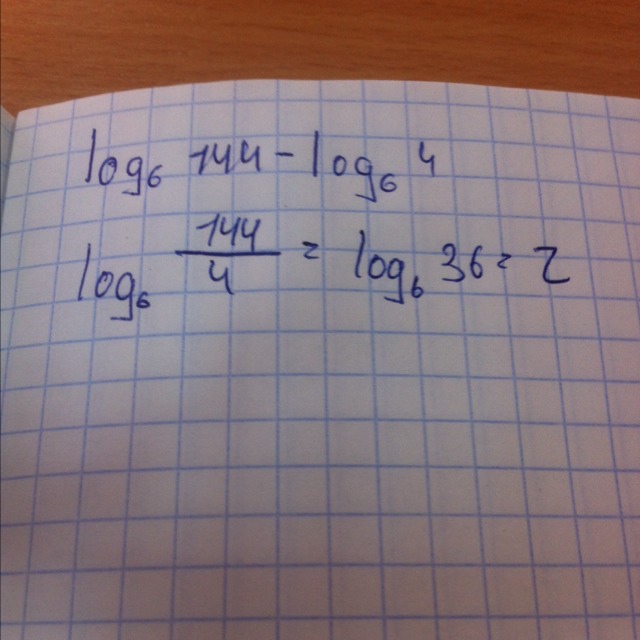 log₆ 144 - log₆ 4
log₆ 144/4 = log₆ 36 = 2